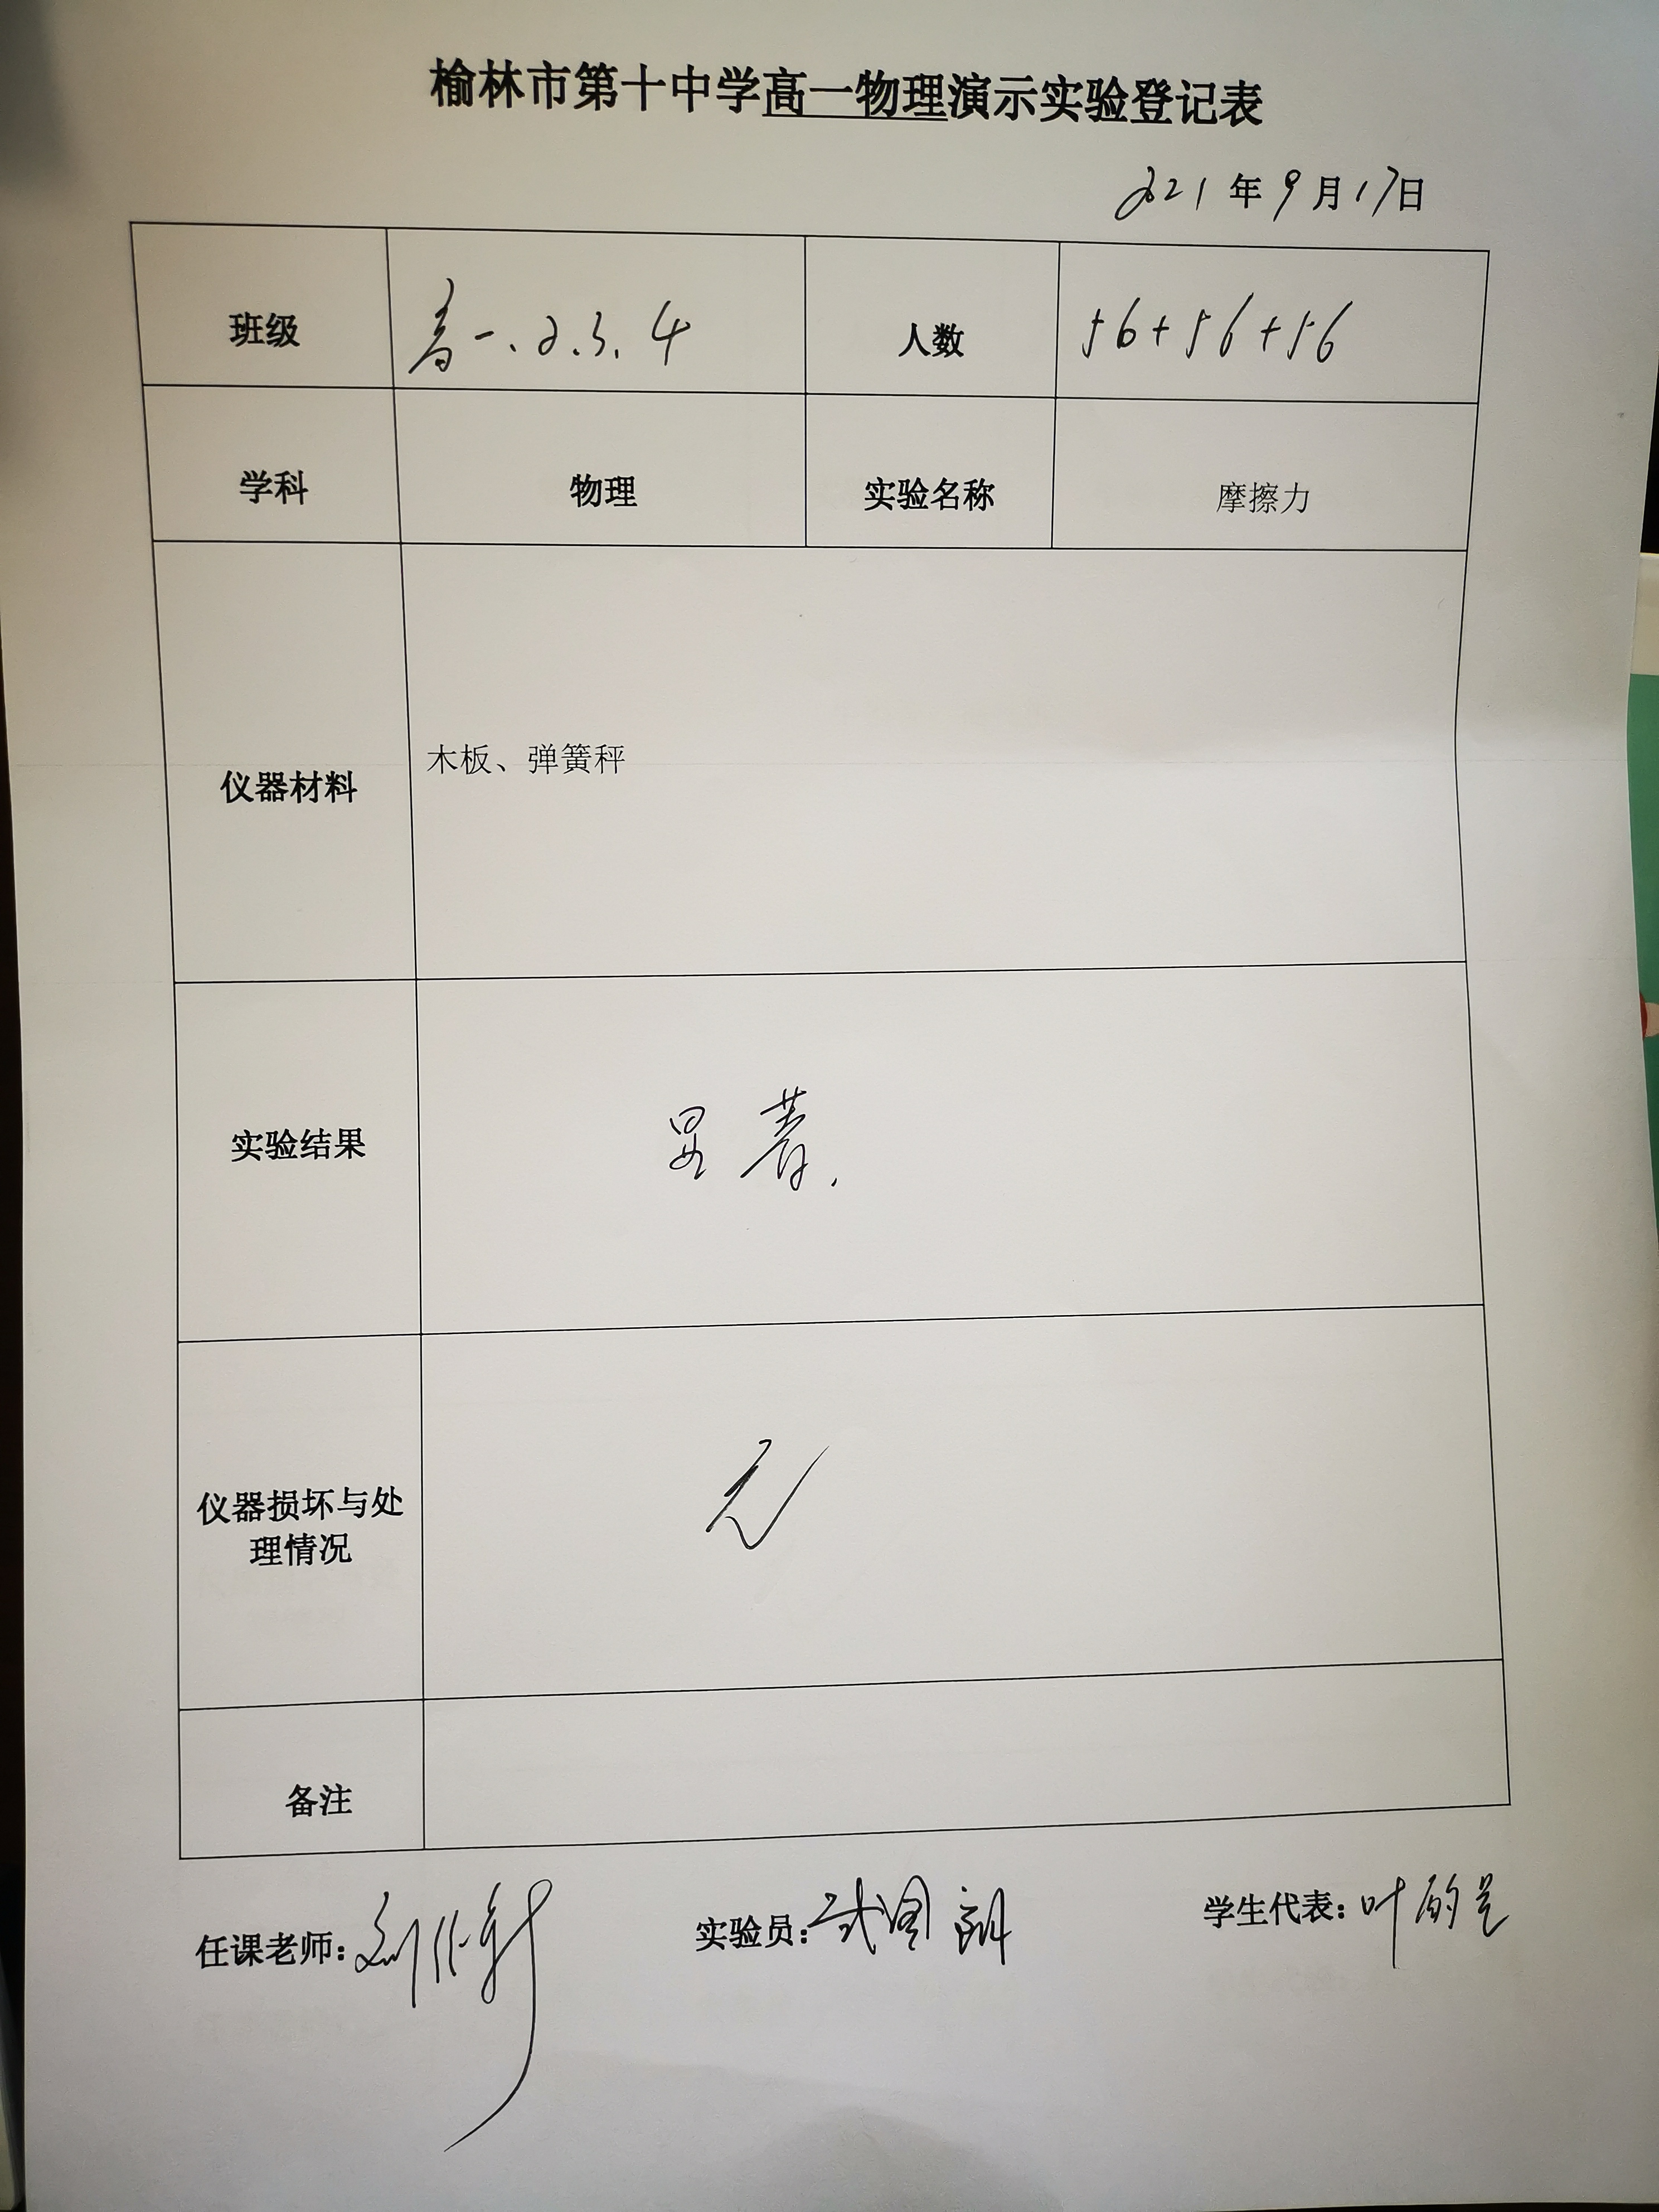 榆林市第十中学高一物理演示实验登记表
2021年9月17日
班级 高一.2.3.4 人数 56+56+56
学科 物理 实验名称 摩擦力
仪器材料 木板、弹簧秤
实验结果 显著.
仪器损坏与处
理情况 无
备注
任课老师: 实验员: 学生代表: